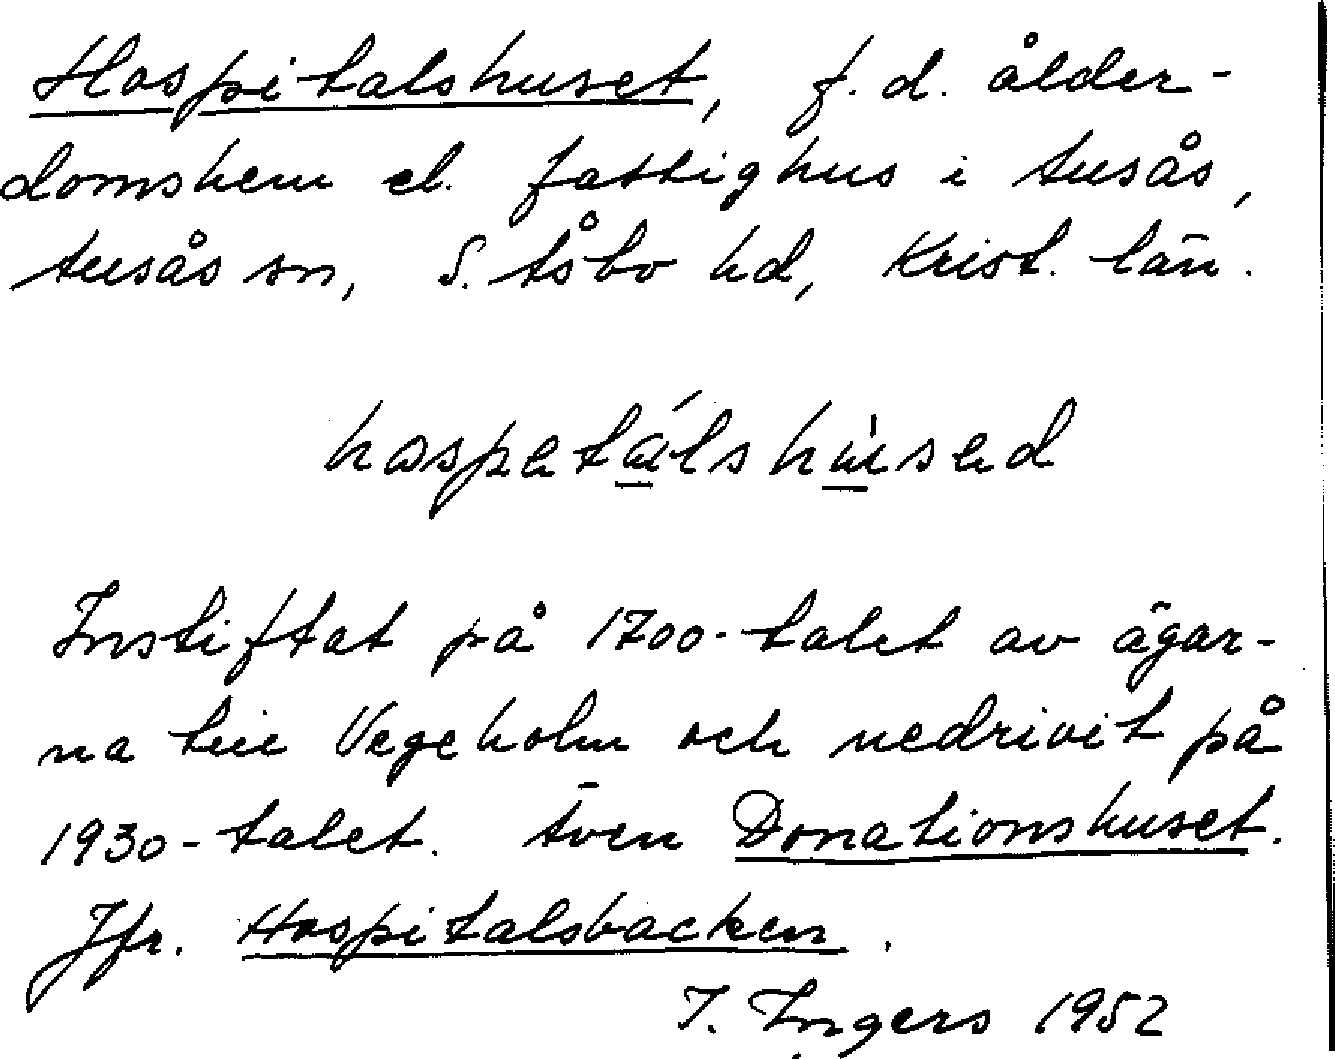 Hospitalshuset, f.d. ålder-
domshem el. fattighus i Ausås,
Ausås sn, S. Åsbo hd, Krist. län.
hospetálshùsed
Instiftat på 1700-talet av ägar-
na till Vegeholm och nedrivit på
1930-talet. Även Donationshuset.
Jfr. Hospitalsbacken.
I. Ingers 1952